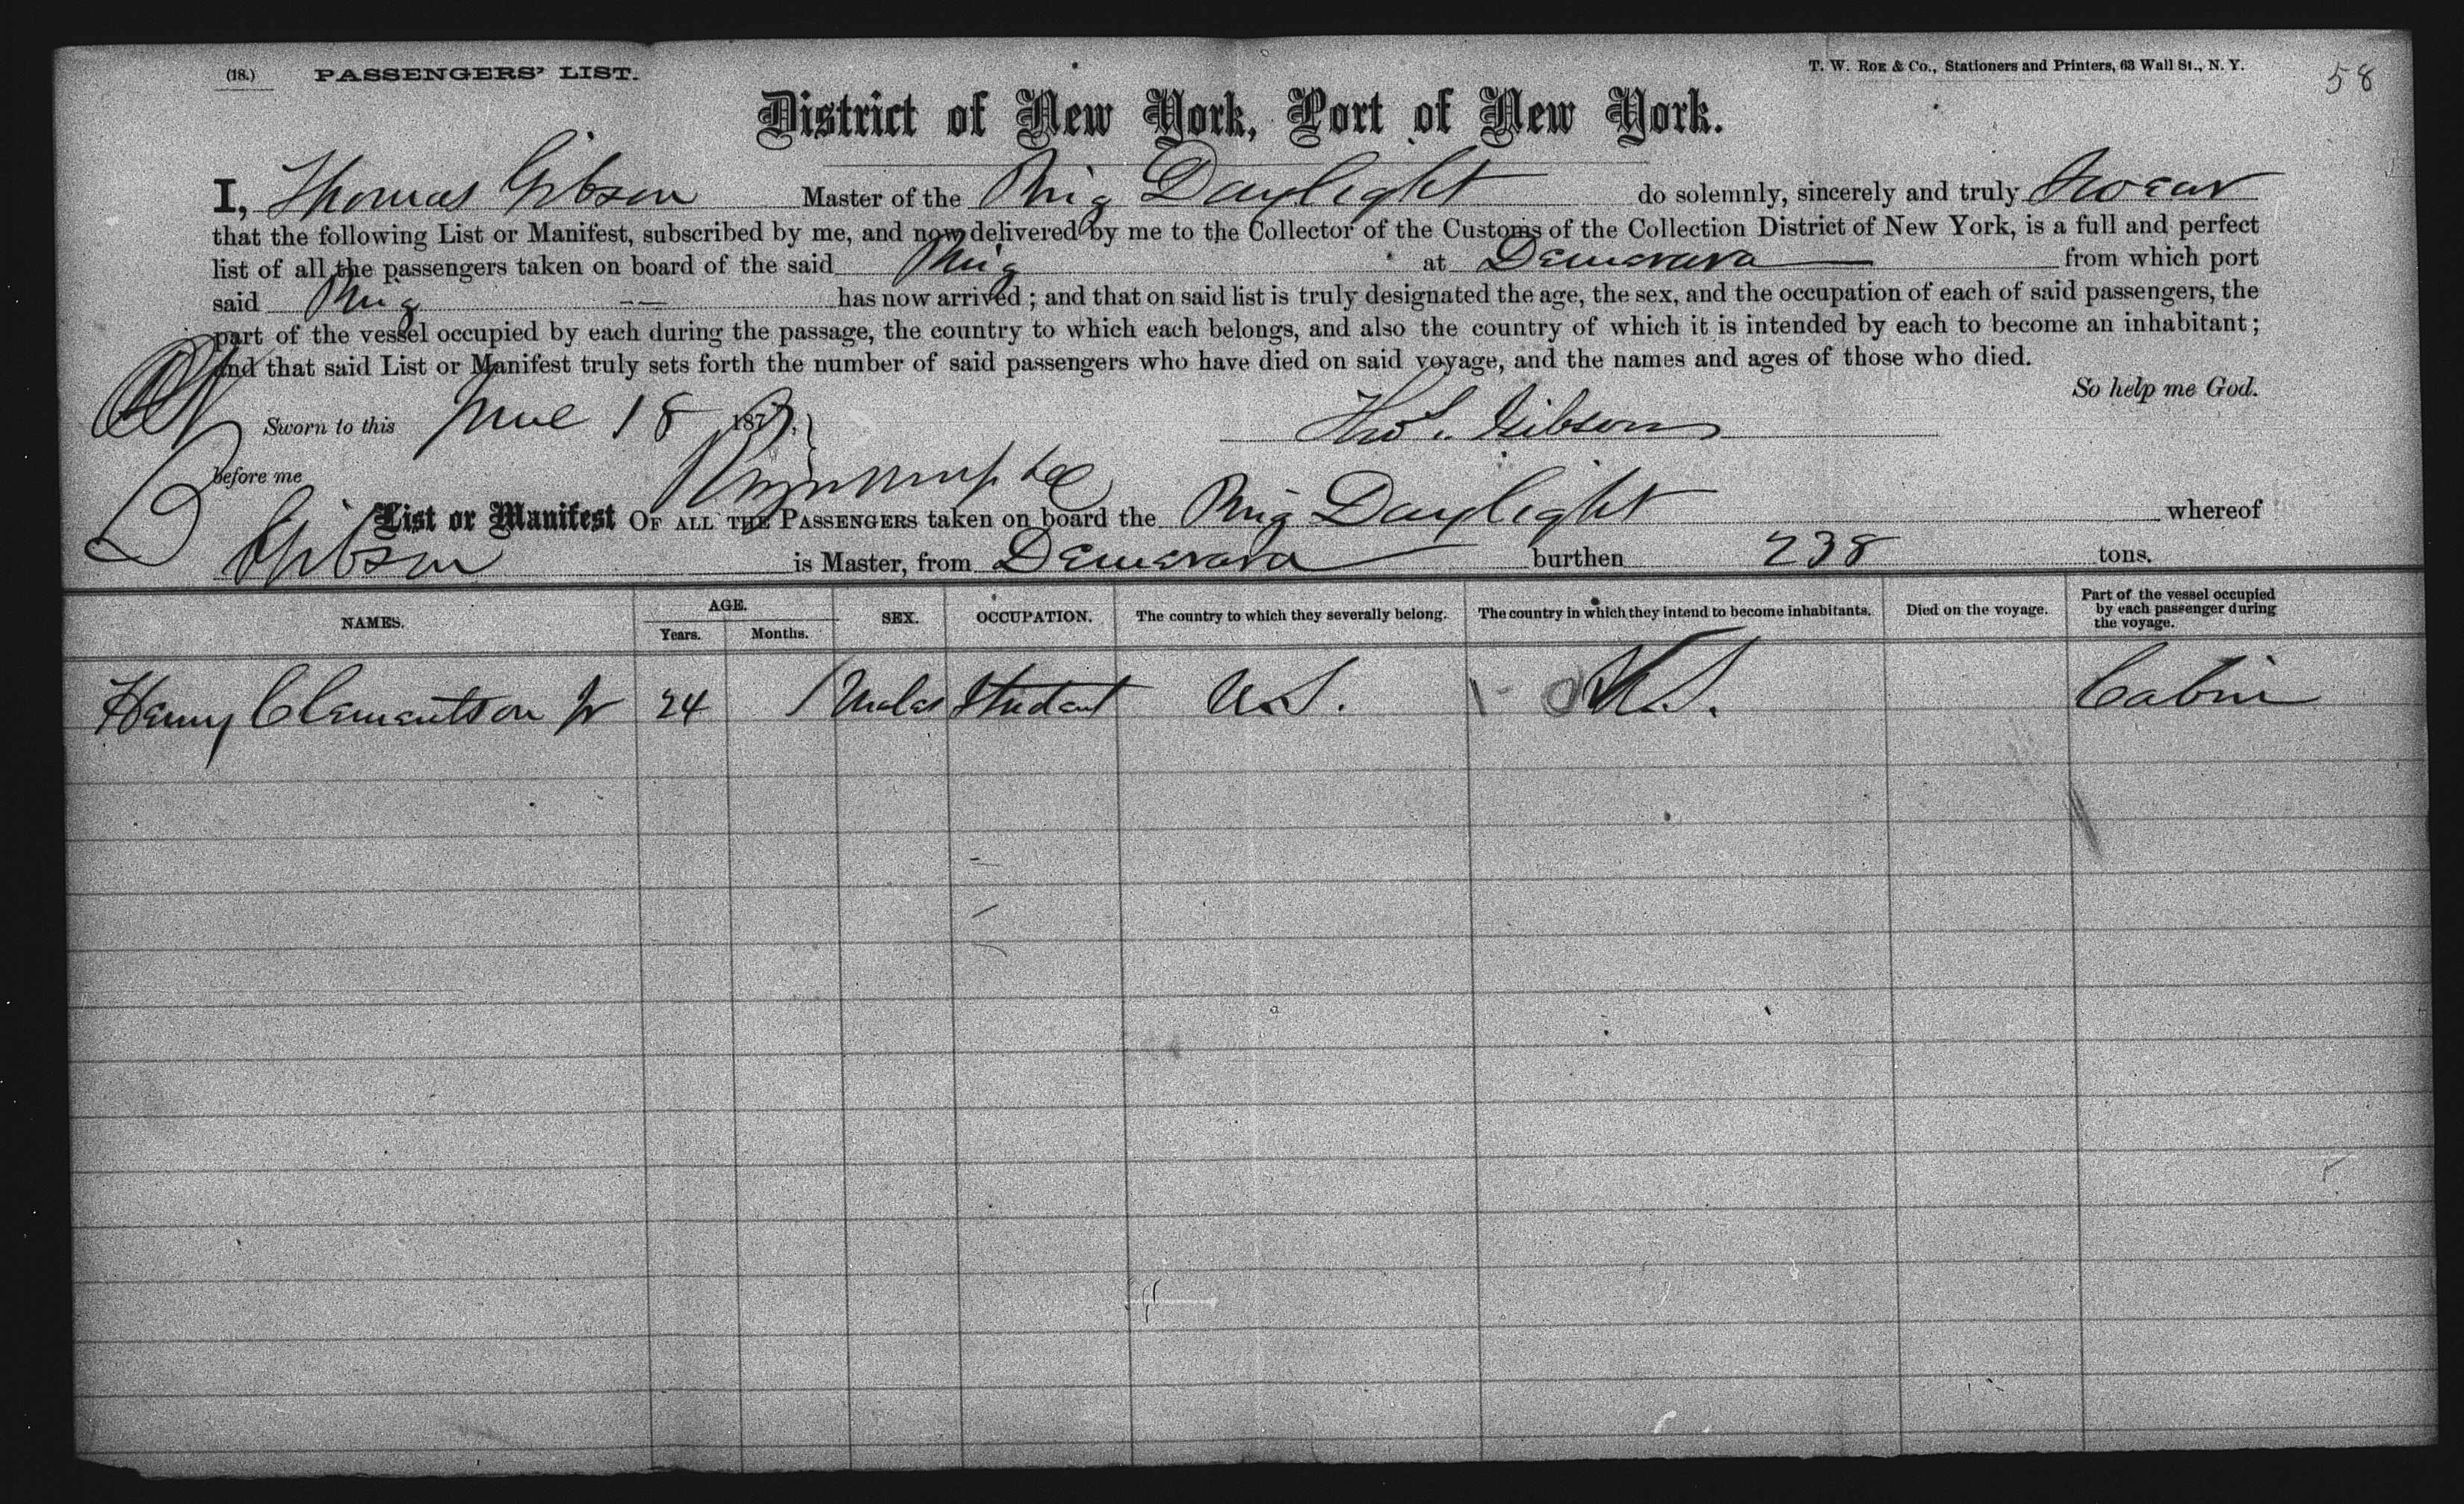 (18.) PASSENGERS' LIST. T. W. ROE & Co., Stationers and Printers, 63 Wall St., N. Y. 58
District of New York, Port of New York.
I, Thomas Gibson Master of the Brig Daylight do solemnly, sincerely and truly Swear
that the following List or Manifest, subscribed by me, and now delivered by me to the Collector of the Customs of the Collection District of New York, is a full and perfect
list of all the passengers taken on board of the said Brig at Demerara from which port
said Brig has now arrived ; and that on said list is truly designated the age, the sex, and the occupation of each of said passengers, the
part of the vessel occupied by each during the passage, the country to which each belongs, and also the country of which it is intended by each to become an inhabitant ;
and that said List or Manifest truly sets forth the number of said passengers who have died on said voyage, and the names and ages of those who died.
So help me God.
Sworn to this June 18 187 Thos. Gibson
before me
List or Manifest OF ALL THE PASSENGERS taken on board the Brig Daylight whereof
Gibson is Master, from Demerara burthen 238 tons.
NAMES. AGE. Years. Months. SEX. OCCUPATION. The country to which they severally belong. The country in which they intend to become inhabitants. Died on the voyage. Part of the vessel occupied by each passenger during the voyage.
Henry Clementson Jr 24 Male Student U.S. U.S. Cabin